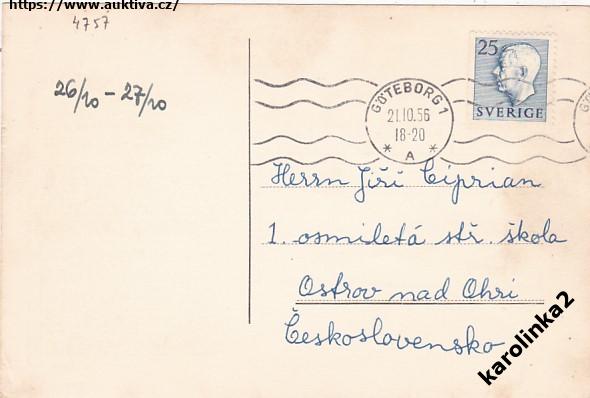 https://www.auktiva.cz/
4757
26/10 – 27/10
25
SVERIGE
GÖTEBORG 1
21.10.56
18-20
* A *
GÖ
Herrn Jiří Ciprian
1. osmiletá stř. škola
Ostrov nad Ohři
Československo
karolinka2